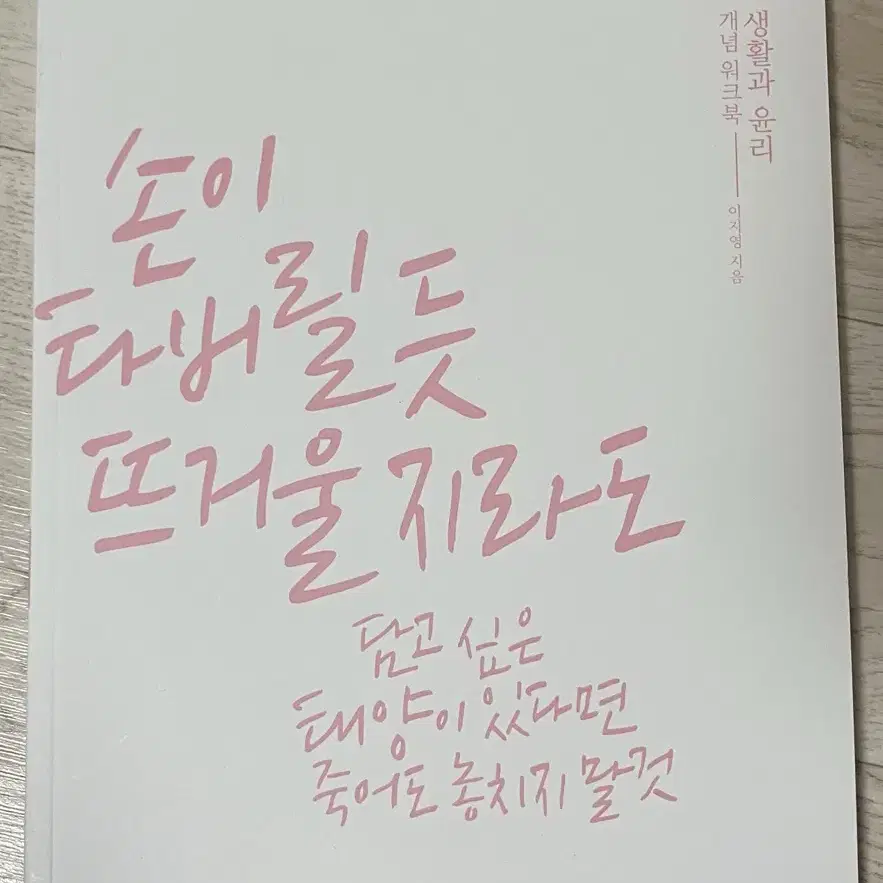 생활과 윤리
개념 워크북
이지영 지음
손이
타버릴 듯
뜨거울지라도
담고 싶은
태양이 있다면
죽어도 놓치지 말것